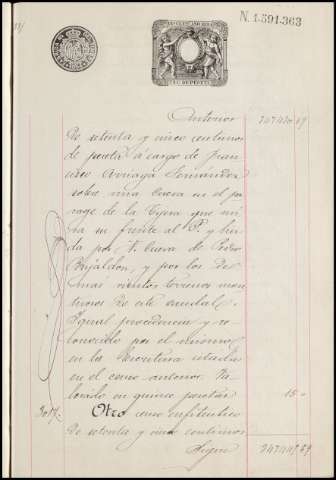 N. 1.591.363
Anterior 747480,19
De setenta y cinco centimos
de peseta á cargo de Fran
cisco Arriaga Fernández
sobre una Cueva en el pa
rage de la que mi
ra su frente al P. y lin
da por N. Cueva de Pedro
y por los De
mas vientos terrenos mon
tuosos De este caudal.
Igual procedencia y re
conocido por el mismo
en la Escritura citada
en el censo anterior. Va
lorado en quince pesetas 15
Otro censo enfiteutico
De setenta y cinco centimos
Sigue